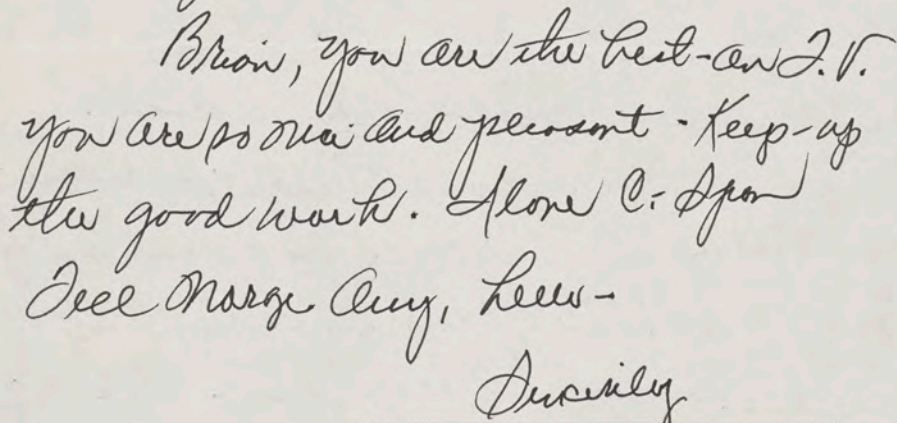 Brian, you are the best-on T.V.
you are so nice and pleasant - Keep-up
the good work. I love C-Span
Tell Marge Amy, hello-
Sincerely